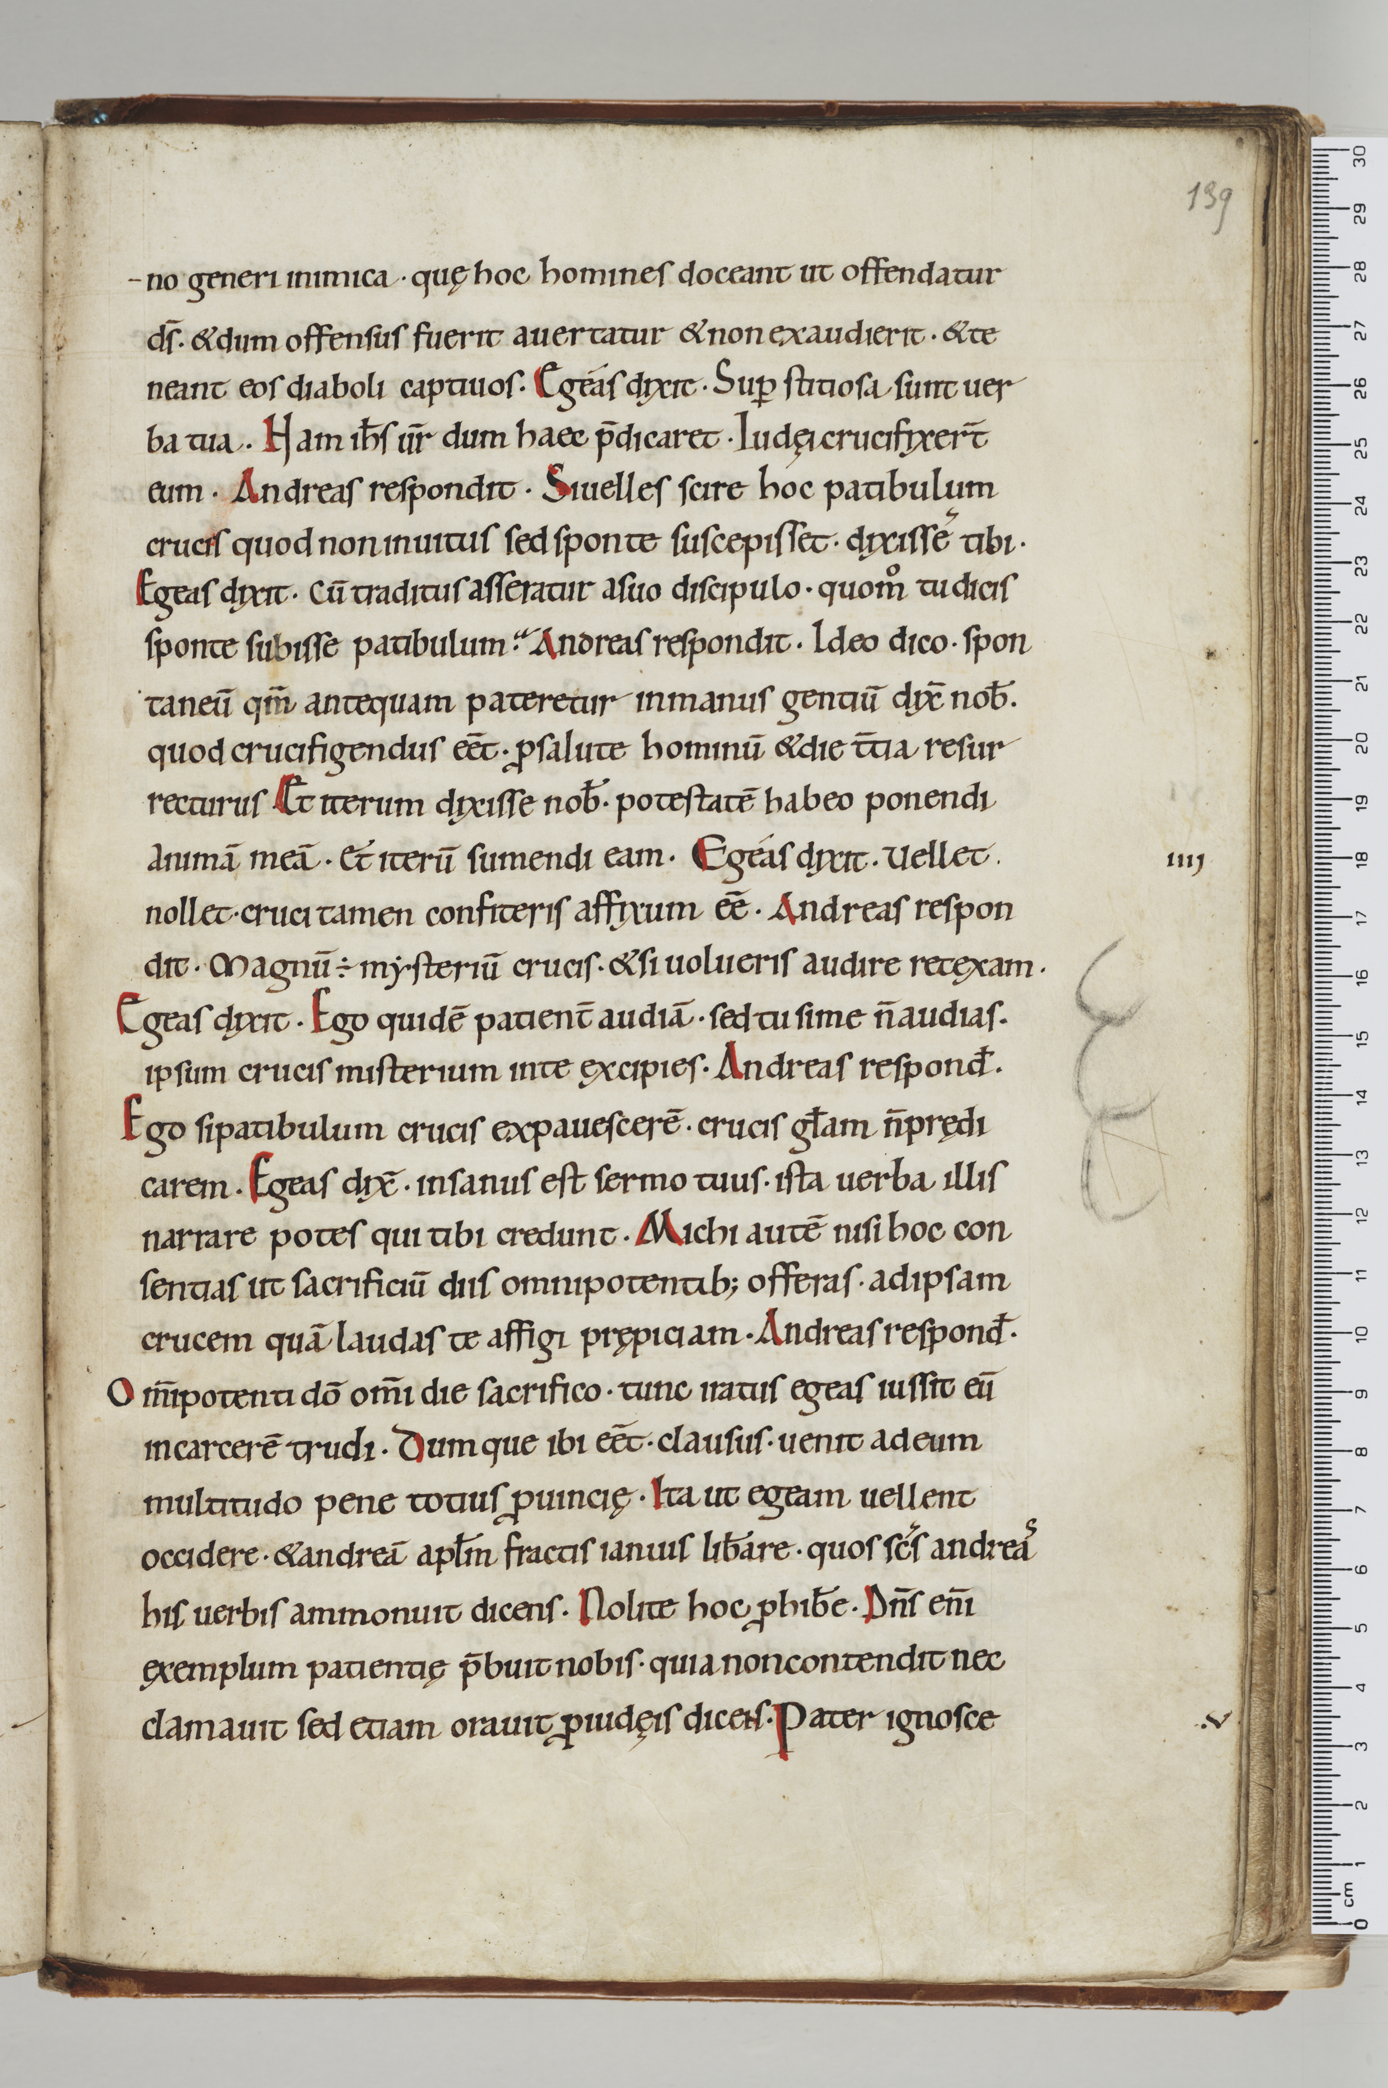 139
-no generi inimica · quę hoc homines doceant ut offendatur
ds̄ · & dum offensus fuerit auertatur & non exaudierit · & te
neant eos diaboli captiuos · Egeas dixit · Sup̱stitiosa sunt uer
ba tua · Nam ihs̄ ur̄ dum haec p̄dicaret · Iudęi crucifixer̄t
eum · Andreas respondit · Si uelles scire hoc patibulum
crucis quod non inuitus sed sponte suscepisset · dixisse tibi ·
Egeas dixit · Cū traditus asseratur a suo discipulo · quom̊ tu dicis
sponte subisse patibulum · Andreas respondit · Ideo dico · spon
taneū qm̄ antequam pateretur in manus gentiū dix̄ nob̄ ·
quod crucifigendus eēt · ꝓ salute hominū & die t̄tia resur
recturus · Et iterum dixisse nob̄ · potestatē habeo ponendi
animā meā · et iterū sumendi eam · Egeas dixit · Uellet ·
nollet · cruci tamen confiteris affixum eē · Andreas respon
dit · Magnū ÷ mysteriū crucis · & si uolueris audire retexam ·
Egeas dixit · Ego quidē patient̄ audiā · sed tu si me n̄ audias ·
ipsum crucis misterium in te excipies · Andreas respond̄ ·
Ego si patibulum crucis expauescerē · crucis gl̄am n̄ prędi
carem · Egeas dix̄ · insanus est sermo tuus · ista uerba illis
narrare potes qui tibi credunt · Michi autē nisi hoc con
sentias ut sacrificiū diis omnipotentib; offeras · ad ipsam
crucem quā laudas te affigi prępiciam · Andreas respond̄ ·
Om̄ipotenti dō om̄i die sacrifico · tunc iratus egeas iussit eū
in carcerē trudi · Dumque ibi eēt · clausus · uenit ad eum
multitudo pene totius ꝓuincię · Ita ut egeam uellent
occidere · & andreā apl̄m fractis ianuis lib̄are · quos sc̄s andreas
his uerbis ammonuit dicens · Nolite hoc ꝓhib̄e · Dn̄s en̄i
exemplum patientię p̄buit nobis · quia non contendit nec
clamauit sed etiam orauit ꝓ iudęis dicens · Pater ignosce
iiij
v